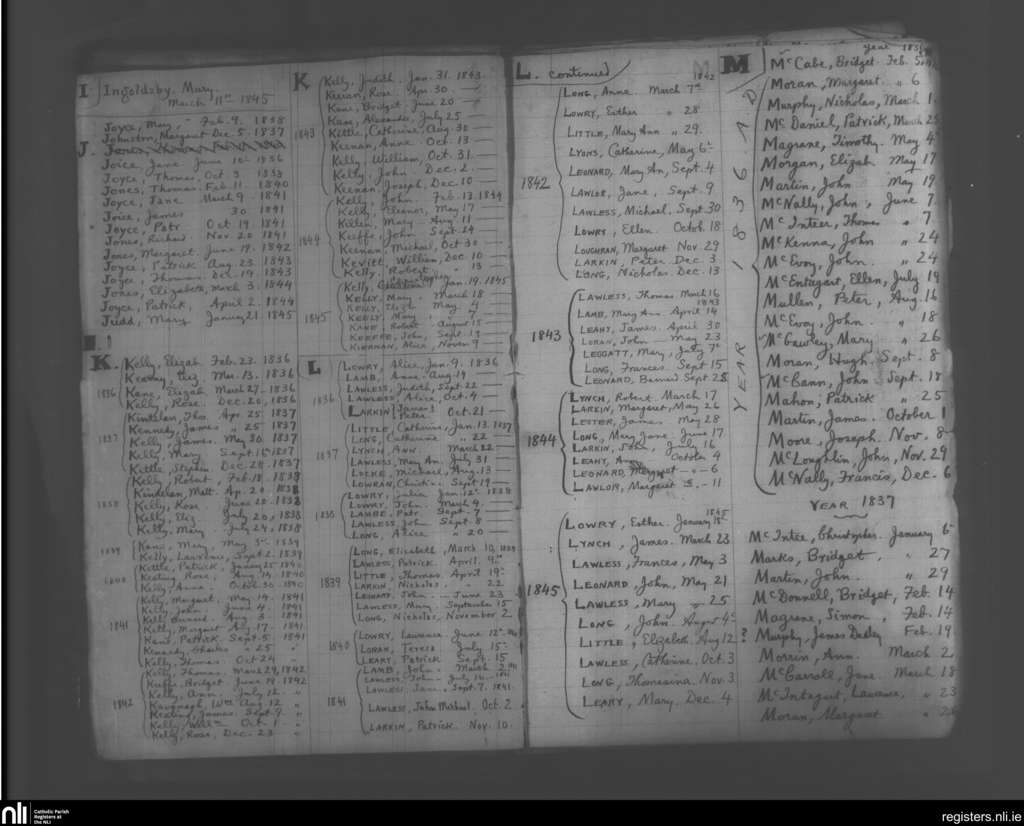 I
Ingoldsby. Mary.
March 11th 1845
Joyce, Mary, Feb. 9. 1838
Johnston, Margaret Dec 5. 1837
J.
Joice Jane June 1836
Joyce, Thomas, Oct. 3 1838
Jones, Thomas. Feb 11 1840
Joyce, Jane March 9. 1841
Joice, James 30 1841
Joyce, Patr Oct. 19 1841
Jones, Richard Nov 20 1841
Jones, Margaret June 19. 1842
Joyce, Patrick Aug 23. 1843
Joyce, Thomas. Dec 19. 1843
Jones, Elizabeth, March 3. 1844
Joyce, Patrick, April 2. 1844
Judd, Mary 21. 1845
K.
1836
Kelly, Elizab. Feb. 23. 1836
Kearny, Eliz Mar. 13. 1836
Kane, Elizab March 27. 1836
Kelly, Rose. Dec. 20, 1836
1837
Kinselen, Thos. Apr. 25. 1837
Kennedy, James " 25 1837
Kelly, James. May 30. 1837
Kelly, Mary Sept. 15 1837
Kittle, Stephen Dec. 28. 1837
1838
Kelly, Robert, Feb. 18. 1838
Kindelen, Matt. Ap. 20. 1838
Kelly, Rose June 28. 1838
Kelly, Eliz July 20, 1838
Kelly, Mary July 24. 1838
1839
Kane, Mary, May 3rd 1839
Kelly, Laurence, Sept 2. 1839
1840
Kettle, Patrick, January 25 1840
Keating, Rose, Aug. 14. 1840
Kelly, Anne. Octr. 30. 1840
1841
Kelly, Margaret, May 14. 1841
Kelly, John. June 4. 1841
Kelly, Bernard. Aug 3. 1841
Kelly, Margaret Aug 17. 1841
Kane, Patrick. Sept. 5. 1841
Kennedy, Charles " 25 "
Kelly, Thomas. Oct 24 "
1842
Kelly, Thomas. March 29, 1842
Kuffe, Bridget June 19. 1842
Kelly, Ann. July 12. "
Kavanagh, Wm Aug. 12 "
Keating, James. Sept. 9. "
Kelly, Willm Oct. 1. "
Kelly, Rose, Dec. 23 "
K
1843
Kelly, Judith. Jan. 31. 1843
Kieran, Rose Apr 30.
Kane, Bridget. June 20
Kane, Alexander, July 25
Kettle, Catherine Aug. 30
Keenan, Anne. Oct. 13
Kelly William, Oct. 31.
Kelly, John Dec. 2.
Keenan, Joseph, Dec. 10
1844
Kelly, John. Feb. 13. 1844
Kelly, Eleanor, May 17
Killin, Mary Aug. 11
Keiffe, John, Sept. 24
Keenan, Michael, Oct 30
Kevitt, William, Dec. 10
Kelly, Robert, " 13
1845
Kelly, Jan. 19. 1845
Kelly, Mary. March 18
Kelly, Eliz May 4
Kelly, Mary, " 7
Kane, Robert August 15
Keeffe, John, Sept. 19
Kiernan, Alice, Novem 9
L
1836
Lowry, Alice, Jan. 9. 1836
Lamb, Anne, Aug. 19
Lawless, Judith, Sept. 22
Lawless, Alice, Oct. 4
Larkin James & Peter Oct. 21
1837
Little, Catherine, Jan. 13. 1837
Long, Catherine " 22
Lynch, Ann. March 22
Lawless, May An. July 31
Locke, Michael, Aug. 13
Lowran, Christin. Sept. 19
1838
Lowry, Julia Jan. 12th 1838
Lowry, John. March 9.
Lambe, Patr Sept. 7
Lawless, John Sept. 8
Long, Alice " 20
1839
Long, Elizabeth, March 10. 1839
Lawless, Patrick. April 9th
Little, Thomas. April 19th
Larkin, Nicholas, 22
Leonard, John. June 23
Lawless, Mary. September 15
Long, Nicholas, November 2
1840
Lowry, Laurence, June 12th
Loran, Teresa July 15th
Leary, Patrick Sept. 15
1841
Lamb, John. March 2,
Lawless, John. July 14. 1841
Lawless, Jane, Sept. 7. 1841
Lawless, John Michael, Oct. 2
Larkin, Patrick. Nov. 10
L. continued
1842
1842
Long, Anne. March 7th
Lowry, Esther " 28
Little, Mary Ann " 29.
Lyons, Catherine, May 6th
Leonard, Mary An, Sept. 4
Lawlor, Jane, Sept. 9
Lawless, Michael. Sept. 30
Lowry, Ellen. Octob. 18
Loughran, Margaret Nov. 29
Larkin, Peter. Dec. 3
Long, Nicholas. Dec. 13
1843
Lawless, Thomas. March 16 1843
Lamb, Mary Ann. April 14
Leahy, James. April 30
Loran, John May 23
Leggatt, Mary, July 7th
Long, Frances. Sept 15
Leonard, Barned Sept 25
1844
Lynch, Robert March 17
Larkin, Margaret, May 26
Lester, James May 28
Long, Mary Jane June 17
Larkin, John, July 16
Leahy, Ann October 4
Leonard, Margaret " 6
Lawlor, Margaret 11
1845
Lowry, Esther. January 15th 1845
Lynch, James. March 23
Lawless, Frances, May 3
Leonard, John, May 21
Lawless, Mary " 25
Long, John. August 4th
Little, Elizabth Aug 12 ?
Lawless, Catherine, Oct. 3
Long, Thomasina, Nov. 3
Leary, Mary. Dec. 4
M
YEAR 1836 A.D
Year 1836
McCabe, Bridget. Feb.
Moran, Margaret. " 6
Murphy, Nicholas, March 1.
McDaniel, Patrick, March 25
Magrane, Timothy. May 4th
Morgan, Elizab. May 17
Martin, John May 19
McNally, John, June 7
McInteer, Thomas " 7
McKenna, John " 24
McEvoy, John. " 24
McEntegart, Ellen, July 19
Mullen, Peter, Aug. 16
McEvoy, John. " 18
McGawley, Mary " 26
Moran, Hugh. Sept. 8
McCann, John Sept. 18
Mahon, Patrick " 25
Martin, James. October 1
Moore, Joseph. Nov. 8
McLoughlin, John, Nov. 29
McNally, Francis, Dec. 6
YEAR 1837
McIntee, Christopher. January 6th
Marks, Bridget. " 27
Martin, John. " 29
McDonnell, Bridget, Feb. 14
Magrane, Simon, Feb. 14
Murphy, James Dudley Feb. 19
Morrin, Ann. March 2
McCarroll, Jane. March 18
McIntegart, Laurence, " 23
Moran, Margaret
nli
Catholic Parish
Registers at
the NLI
registers.nli.ie